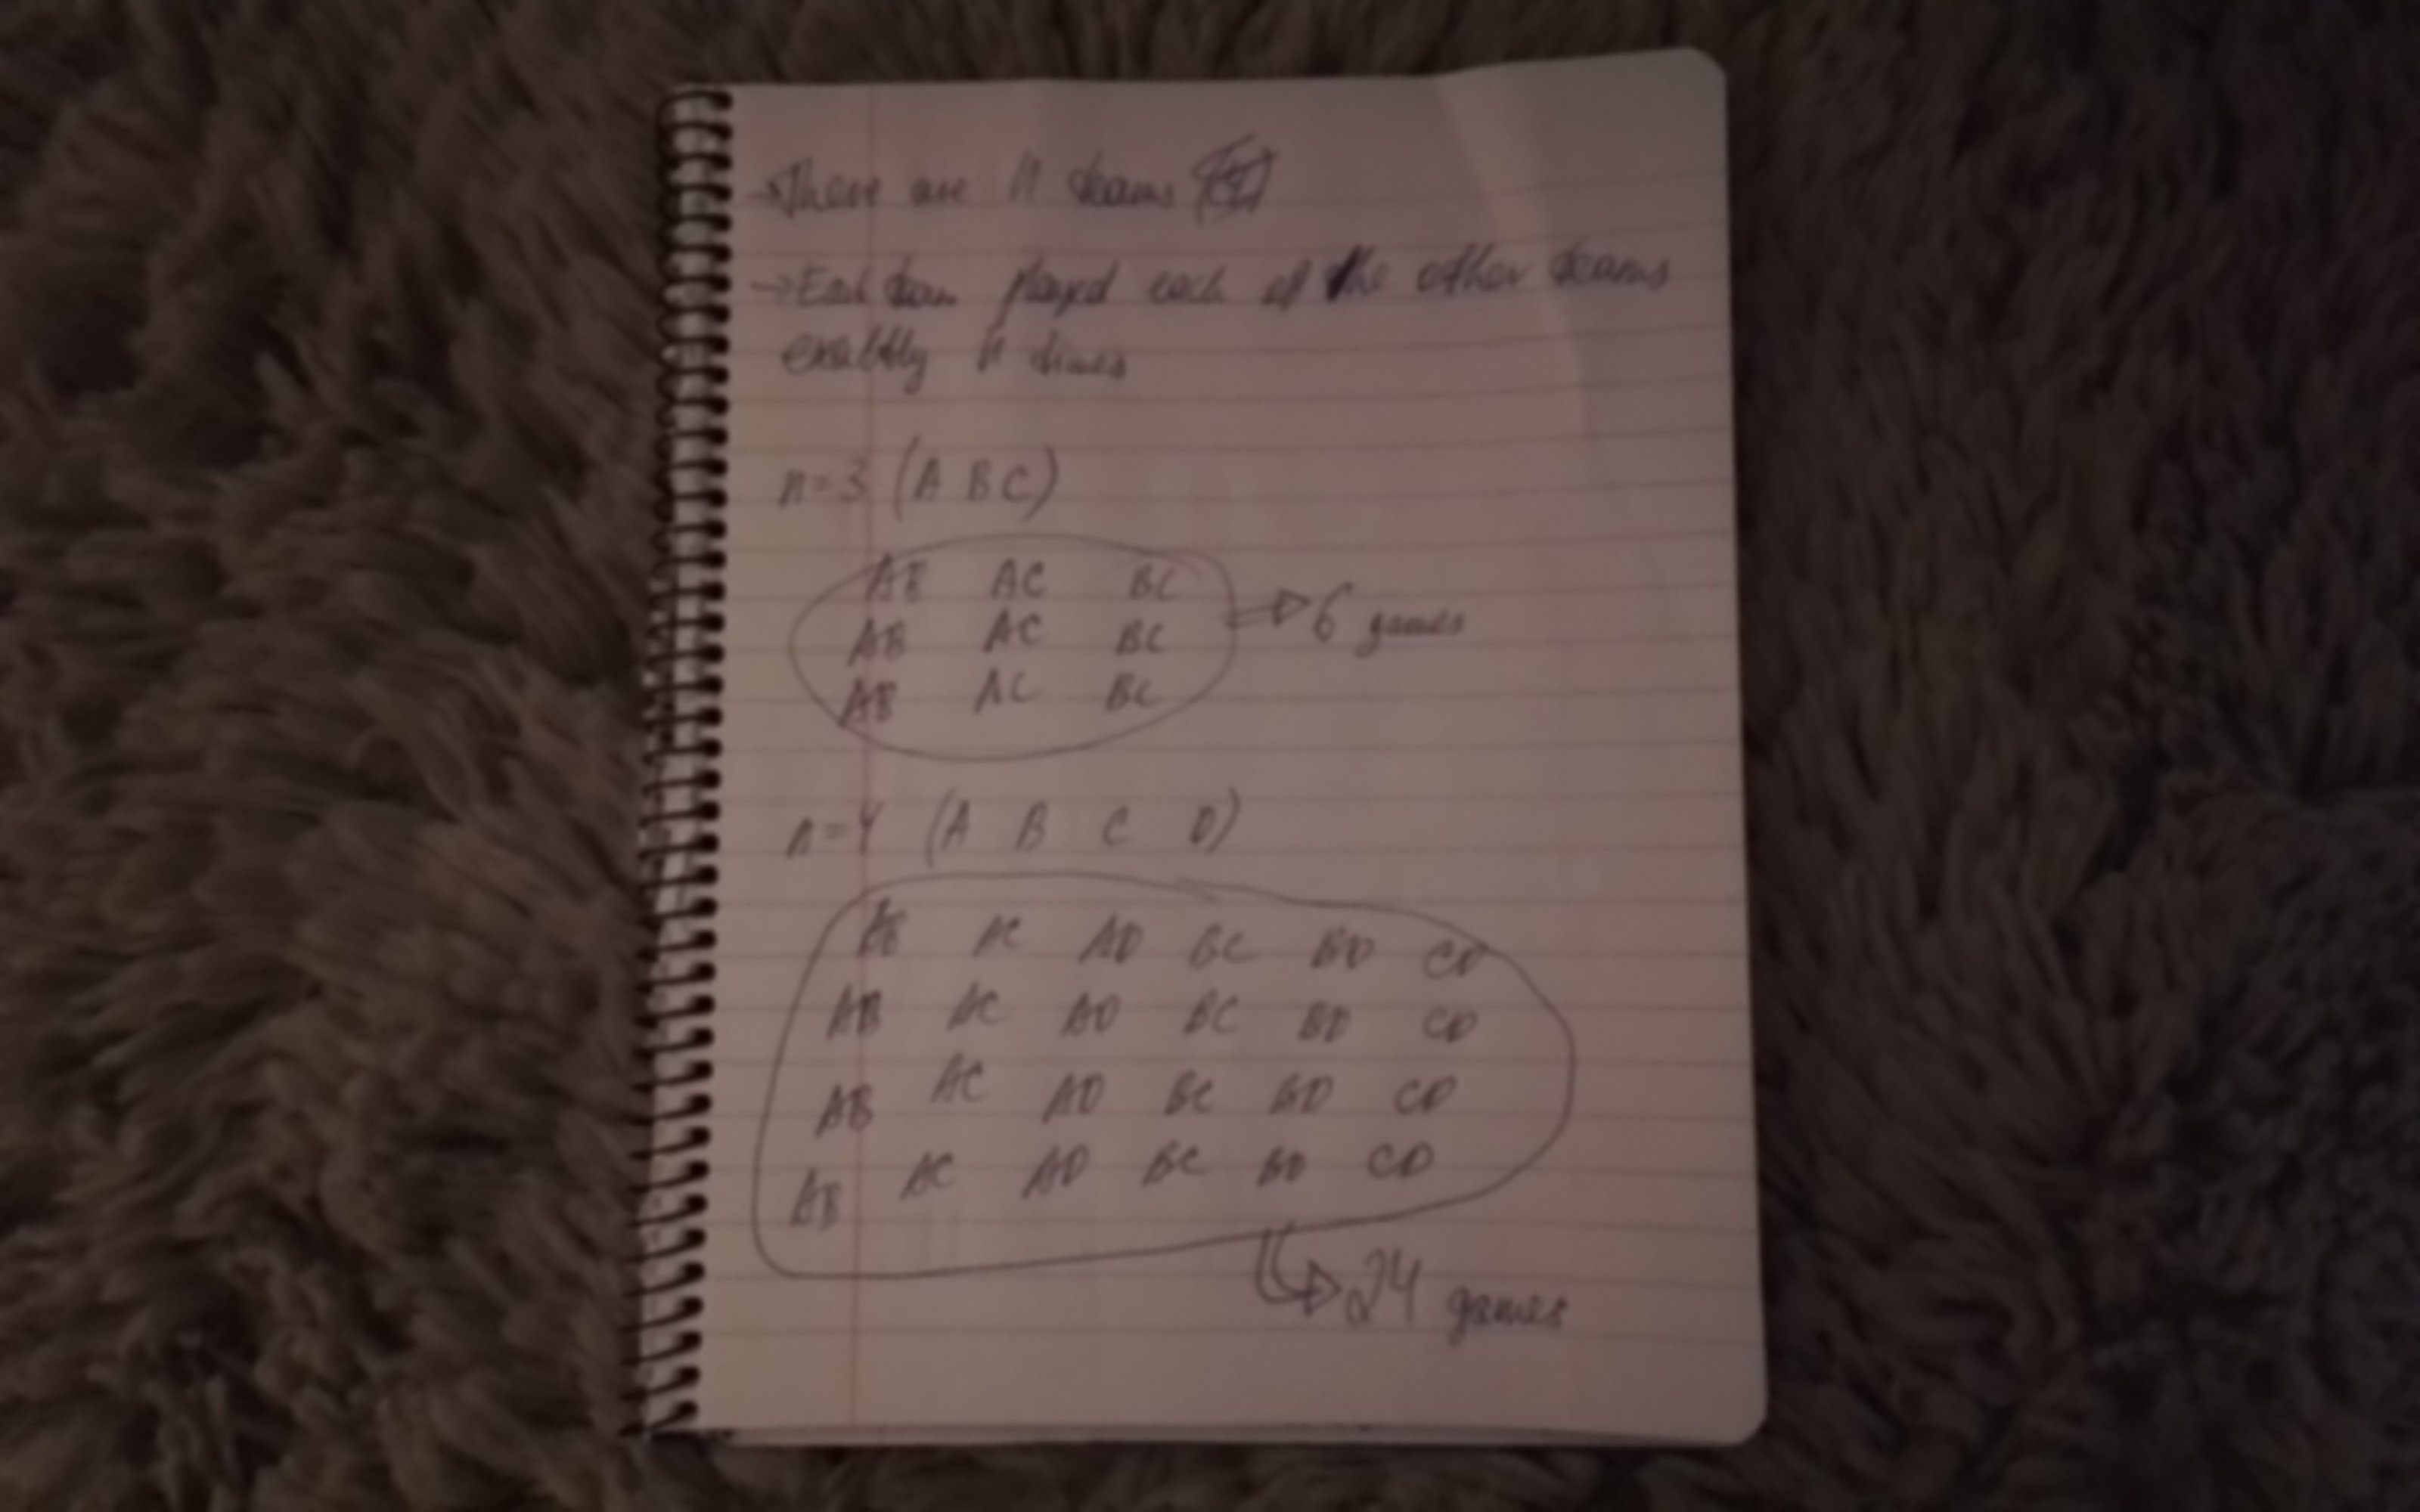 → There are n teams
→ Each team played each of the other teams
exactly n times
n=3 (A B C)
AB AC BC
AB AC BC ⇒ 6 games
AB AC BC
n=4 (A B C D)
AB AC AD BC BD CD
AB AC AD BC BD CD
AB AC AD BC BD CD
AB AC AD BC BD CD
24 games